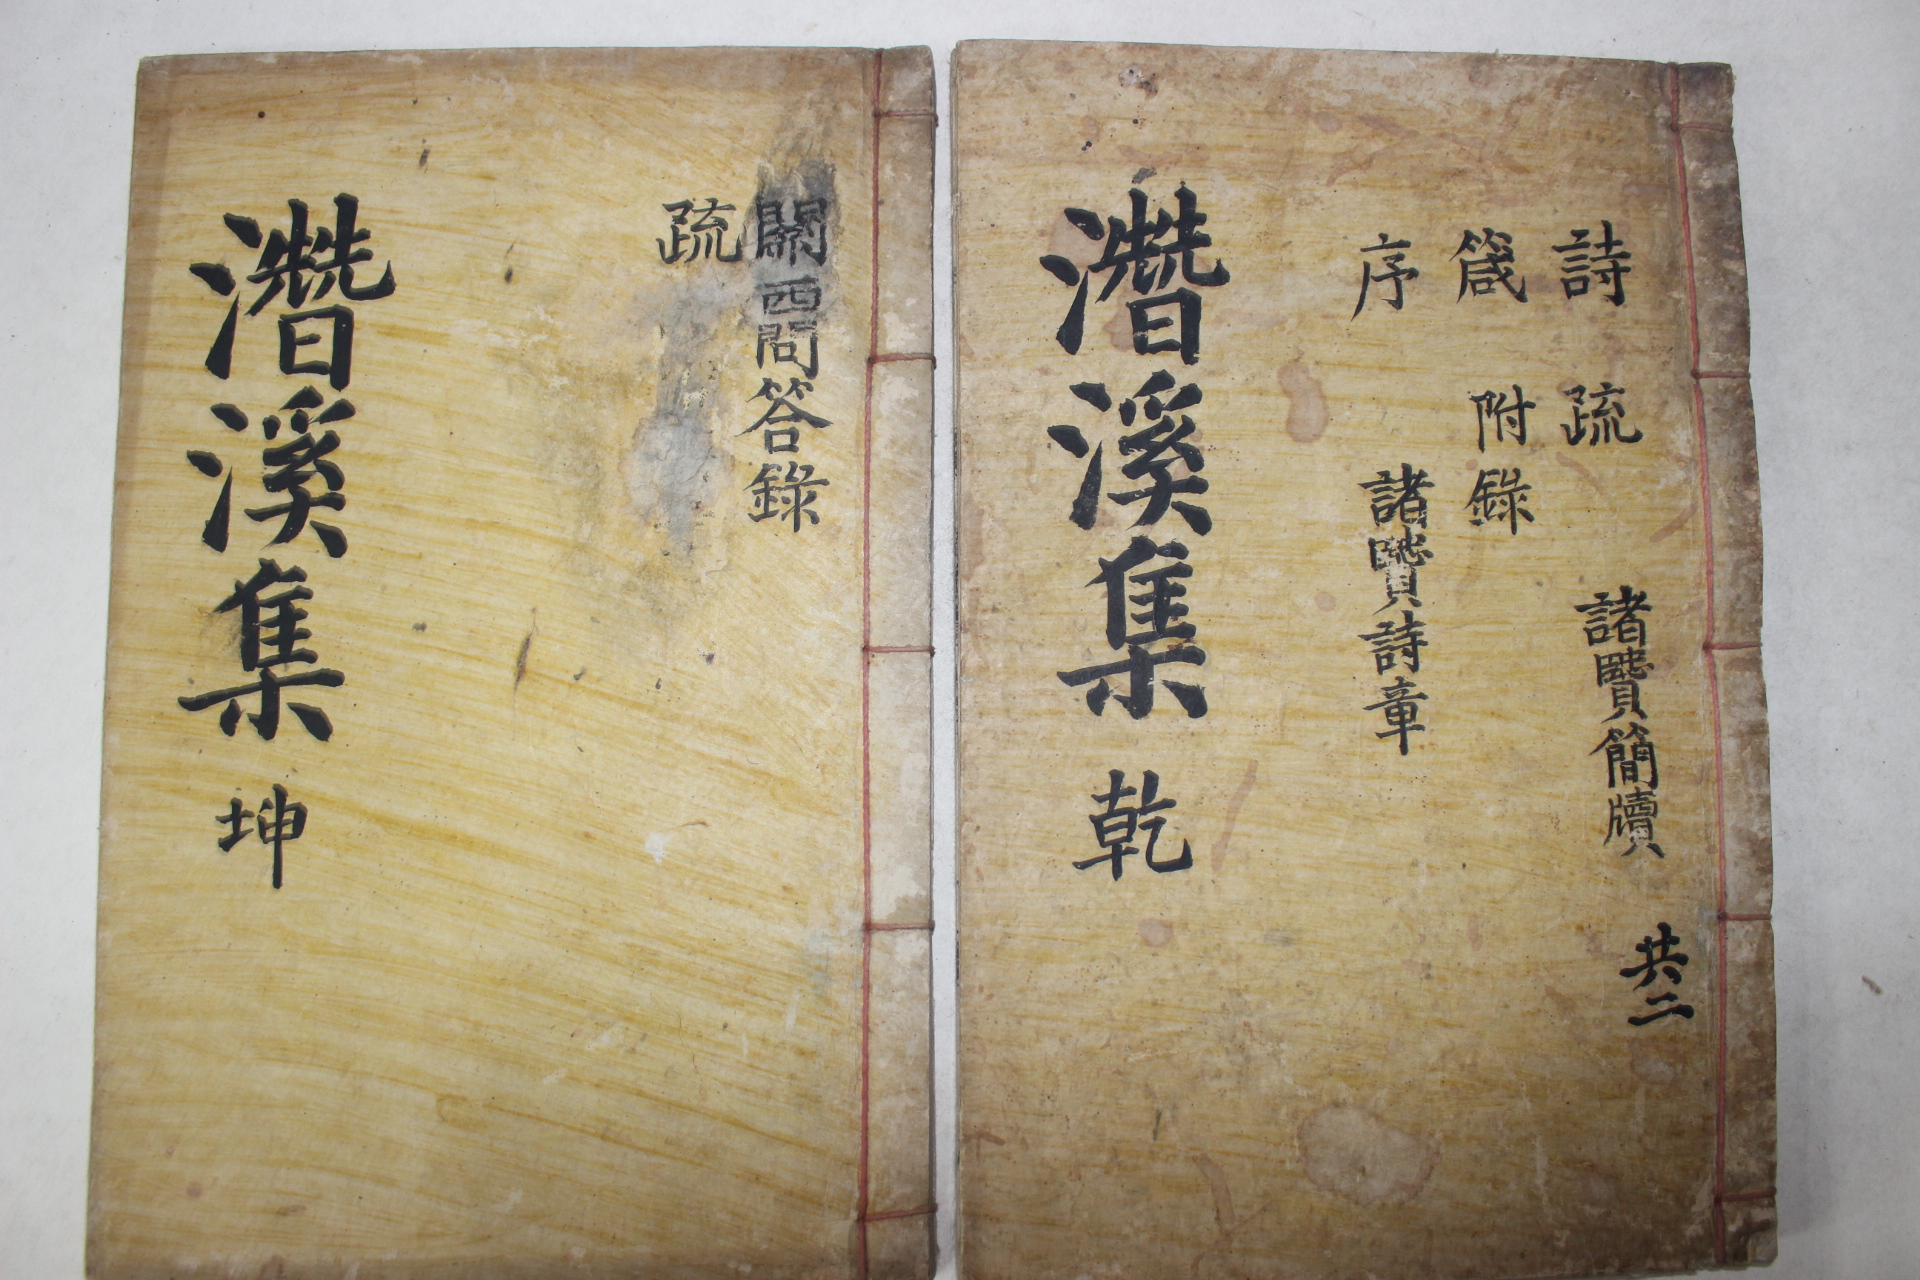 詩 疏 諸賢簡牘 共二
箴 附錄
序 諸賢詩章
濳溪集 乾
關西問答錄
疏
濳溪集 坤